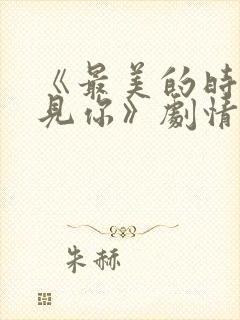 《最美的時
見你》劇情
朱赫